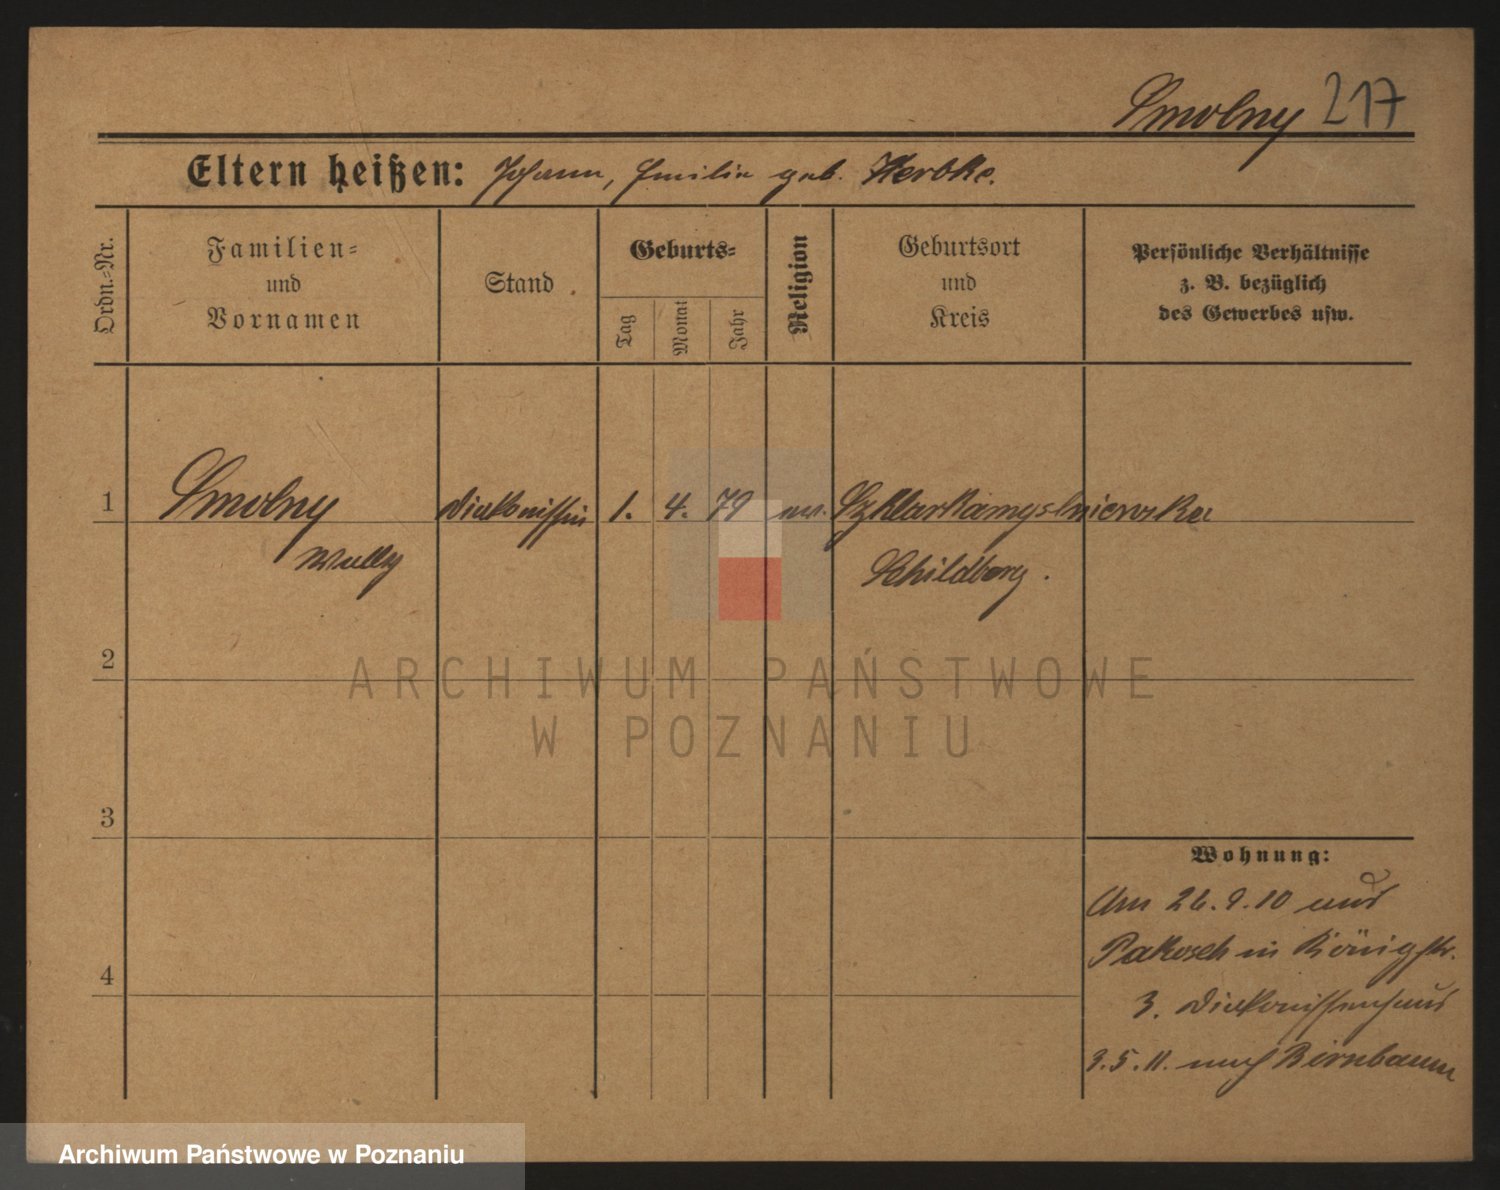 Smolny 217
Eltern heißen: Johann, Emilie geb. Herbke.
Ordn.-Nr.
Familien-
und
Vornamen
Stand
Geburts-
Tag
Monat
Jahr
Religion
Geburtsort
und
Kreis
Persönliche Verhältnisse
z. B. bezüglich
des Gewerbes usw.
1 Smolny Diakonissin 1. 4. 79 ev. Szklarkamyslniewska
Wally Schildberg.
2
3
4
Wohnung:
Am 26. 9. 10 aus
Pakosch in Königstr.
3. Diakonissenhaus
3. 5. 11. nach Birnbaum
ARCHIWUM PAŃSTWOWE
W POZNANIU
Archiwum Państwowe w Poznaniu